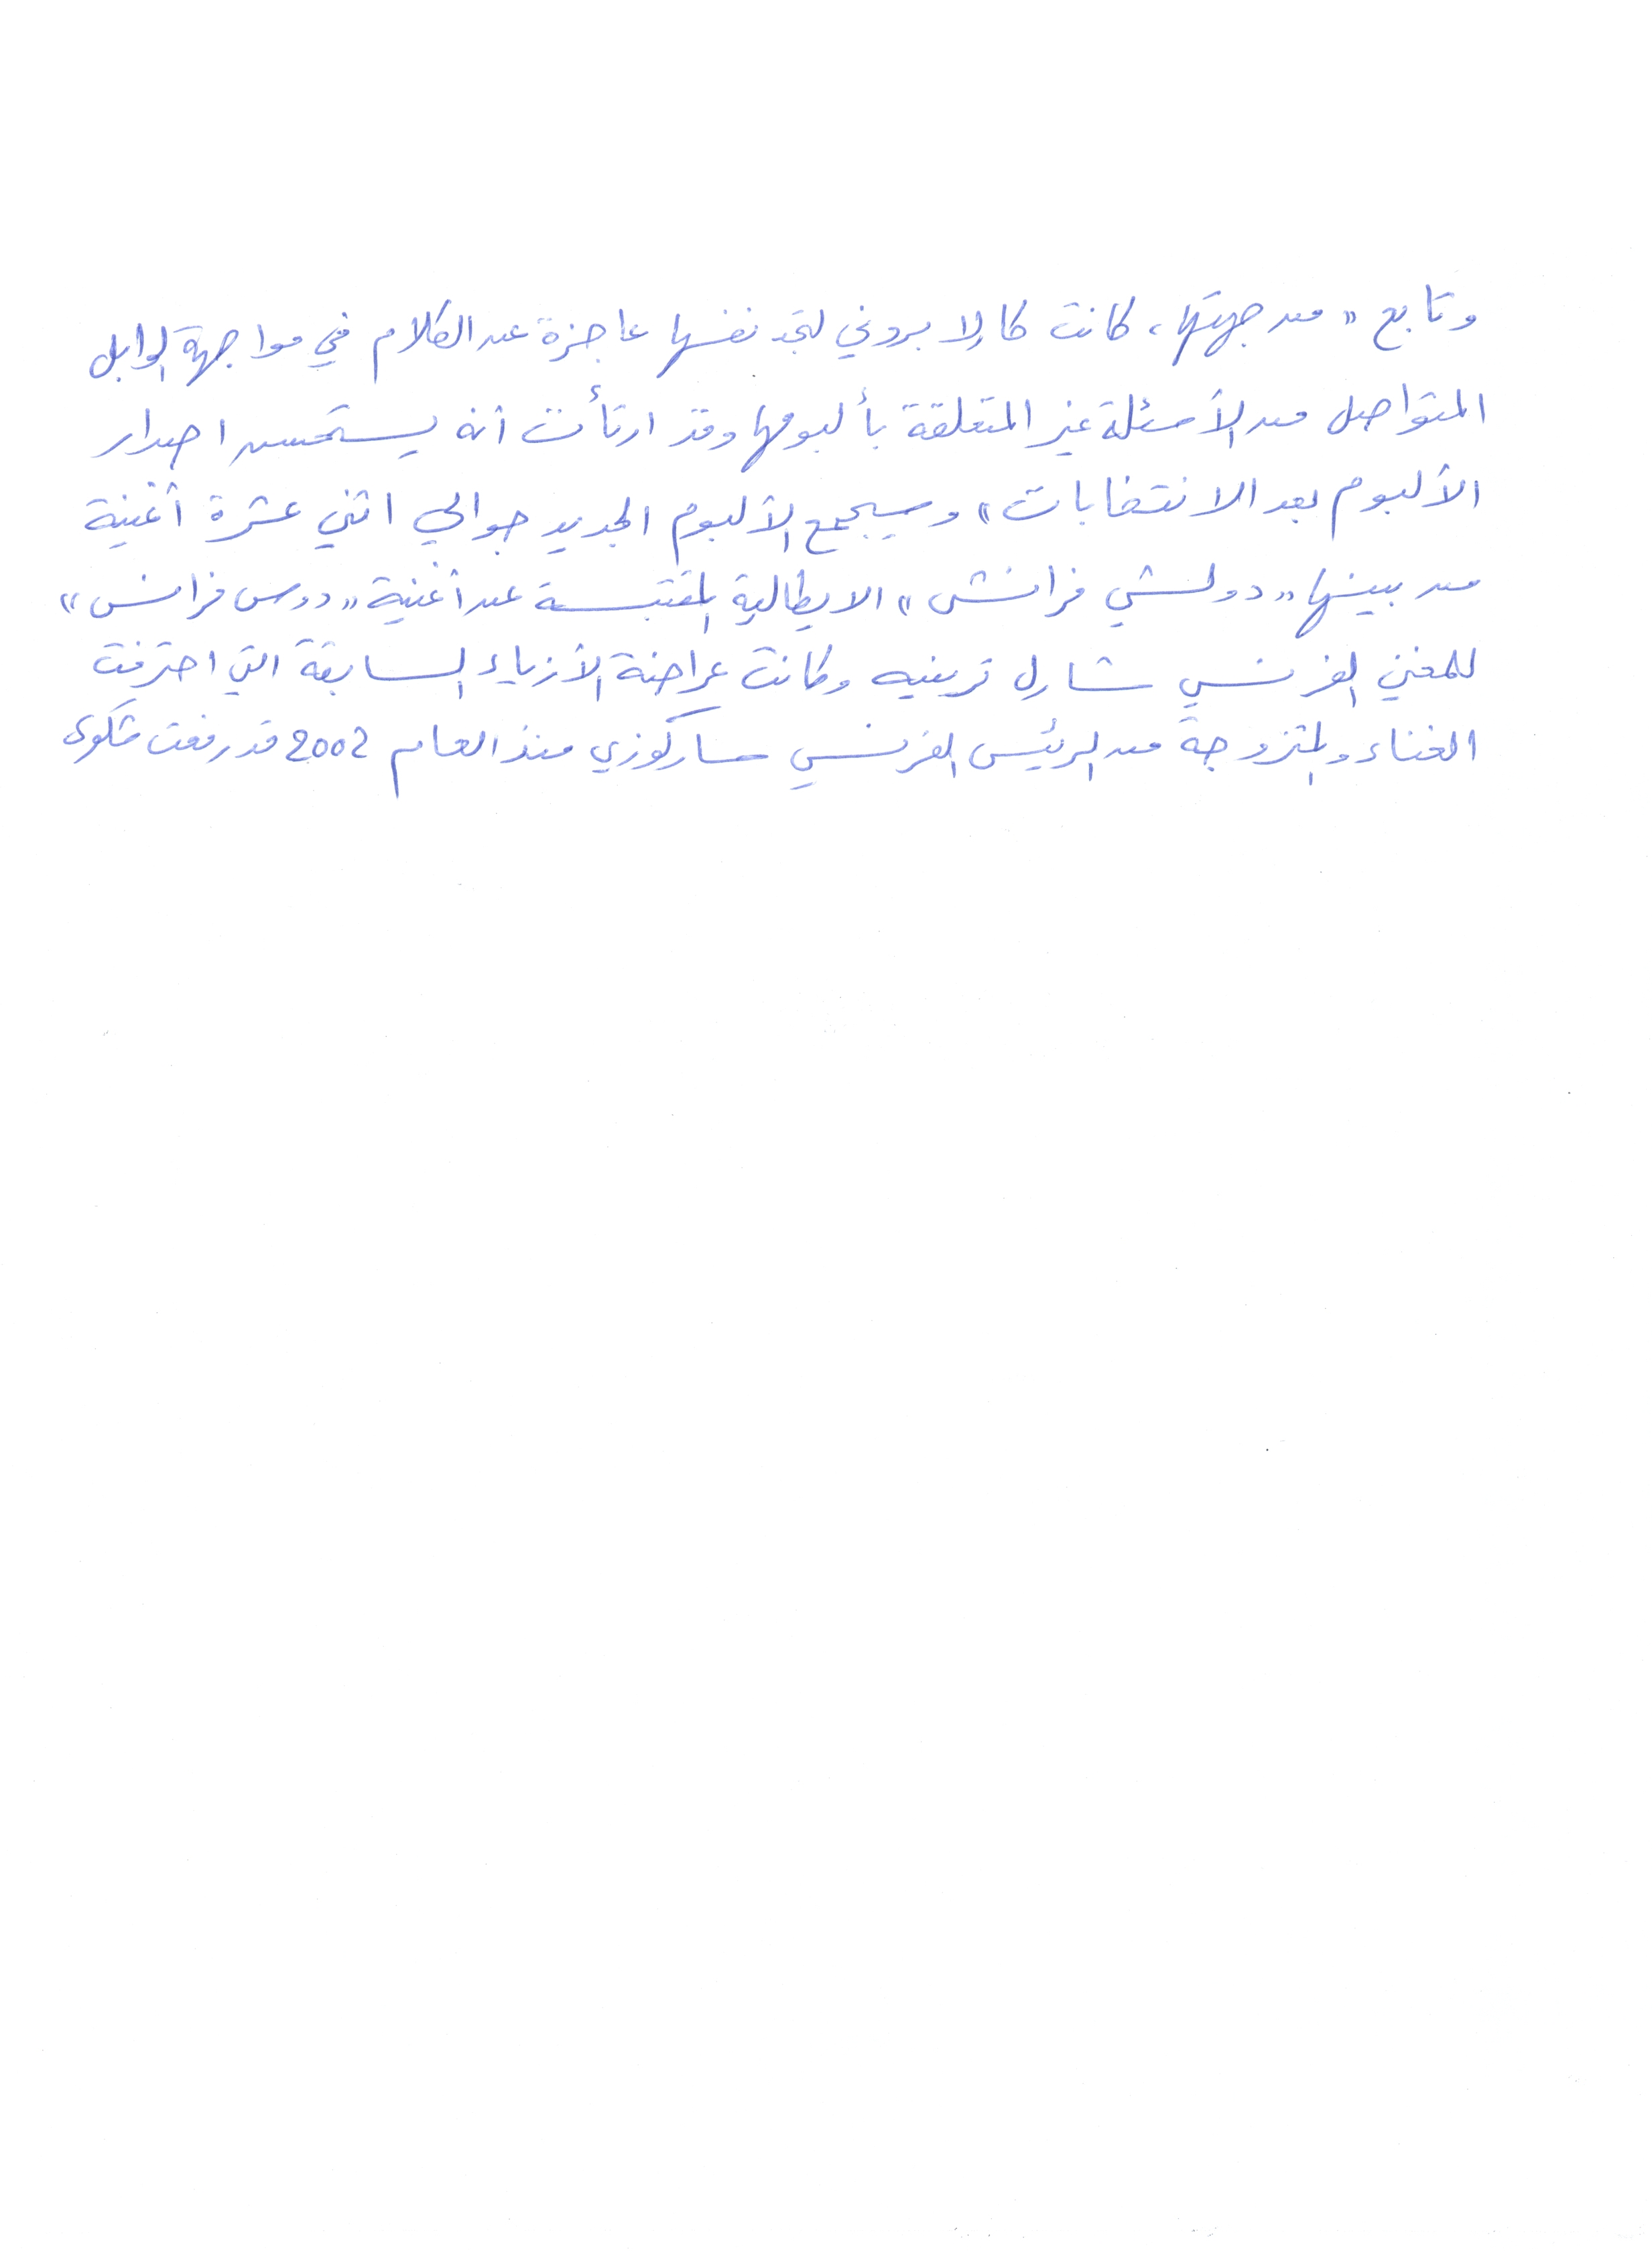 وتابع "من جهتها، كانت كارلا بروني لتجد نفسها عاجزة عن الكلام في مواجهة الوابل
المتواصل من الأسئلة غير المتعلقة بألبومها وقد ارتأت أنه يستحسن اصدار
الألبوم بعد الانتخابات" وسيجمع الألبوم الجديد حوالي اثني عشرة أغنية
من بينها "دولشي فرانشي" الايطالية المقتبسة عن أغنية "دوس فرانس"
للمغني الفرنسي شارل ترينيه وكانت عراضة الأزياء السابقة التي احترفت
الغناء والمتزوجة من الرئيس الفرنسي ساركوزي منذ العام 2002 قد رفعت شكوى